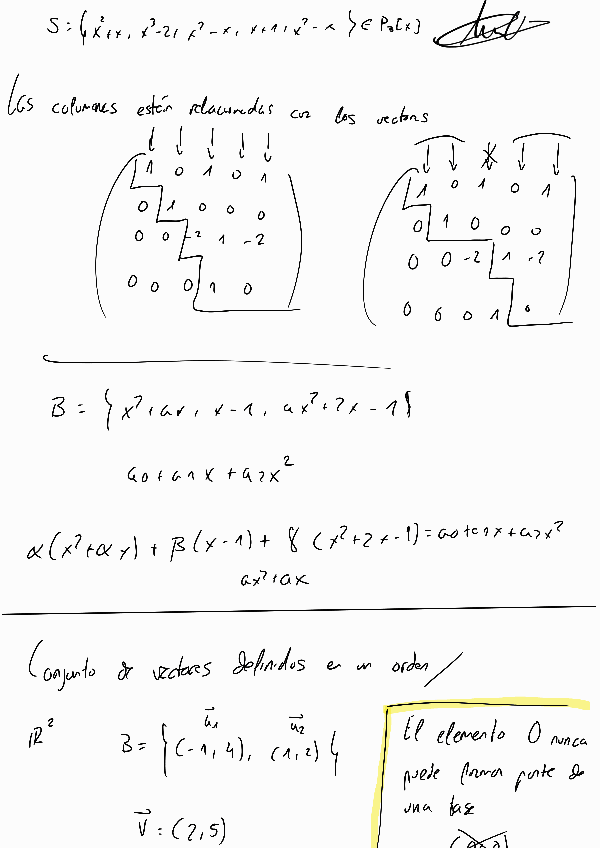 S = { x²+x, x³-2, x²-x, x+1, x²-x } ∈ P₃[x]
Las columnas están relacionadas con los vectores
1 0 1 0 1
0 1 0 0 0
0 0 -2 1 -2
0 0 0 1 0
1 0 1 0 1
0 1 0 0 0
0 0 -2 1 -2
0 0 0 1 0
B = { x²+ax, x-1, ax²+2x-1 }
a0+a1x+a2x²
α(x²+αx) + β(x-1) + γ(x²+2x-1) = a0+a1x+a2x²
ax²+ax
Conjunto de vectores definidos en un orden /
ℝ² B = { (-1,4), (1,2) }
u1 u2
V = (2,5)
El elemento 0 nunca
puede formar parte de
una base